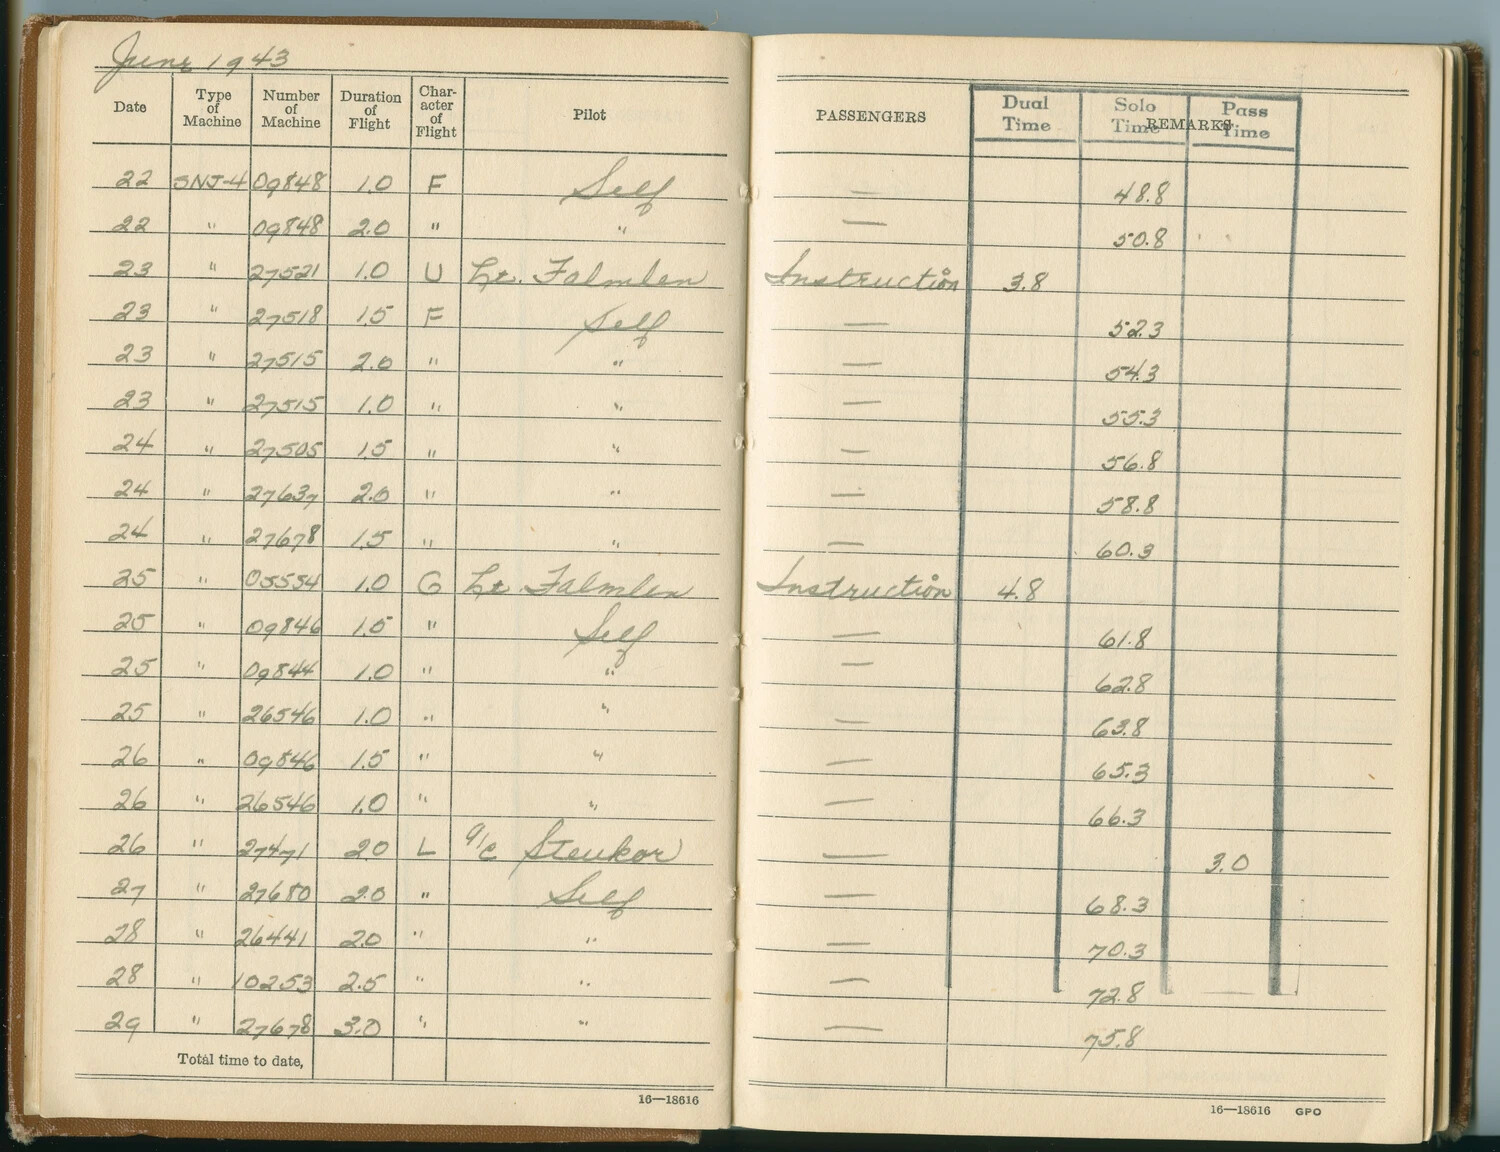 June 1943
Date Type of Machine Number of Machine Duration of Flight Char- acter of Flight Pilot PASSENGERS Dual Time Solo Time REMARKS Pass Time
22 SNJ-4 09848 1.0 F Self — 48.8
22 " 09848 2.0 " " — 50.8
23 " 27521 1.0 U Lt. Falmlen Instruction 3.8
23 " 27518 1.5 F Self — 52.3
23 " 27515 2.0 " " — 54.3
23 " 27515 1.0 " " — 55.3
24 " 27505 1.5 " " — 56.8
24 " 27637 2.0 " " — 58.8
24 " 27678 1.5 " " — 60.3
25 " 05554 1.0 G Lt. Falmlen Instruction 4.8
25 " 09846 1.5 " Self — 61.8
25 " 09844 1.0 " " — 62.8
25 " 26546 1.0 " " — 63.8
26 " 09846 1.5 " " — 65.3
26 " 26546 1.0 " " — 66.3
26 " 27471 2.0 L A/C Steukor — 3.0
27 " 27680 2.0 " Self — 68.3
28 " 26441 2.0 " " — 70.3
28 " 10253 2.5 " " — 72.8
29 " 27678 3.0 " " — 75.8
Total time to date,
16—18616
16—18616 GPO